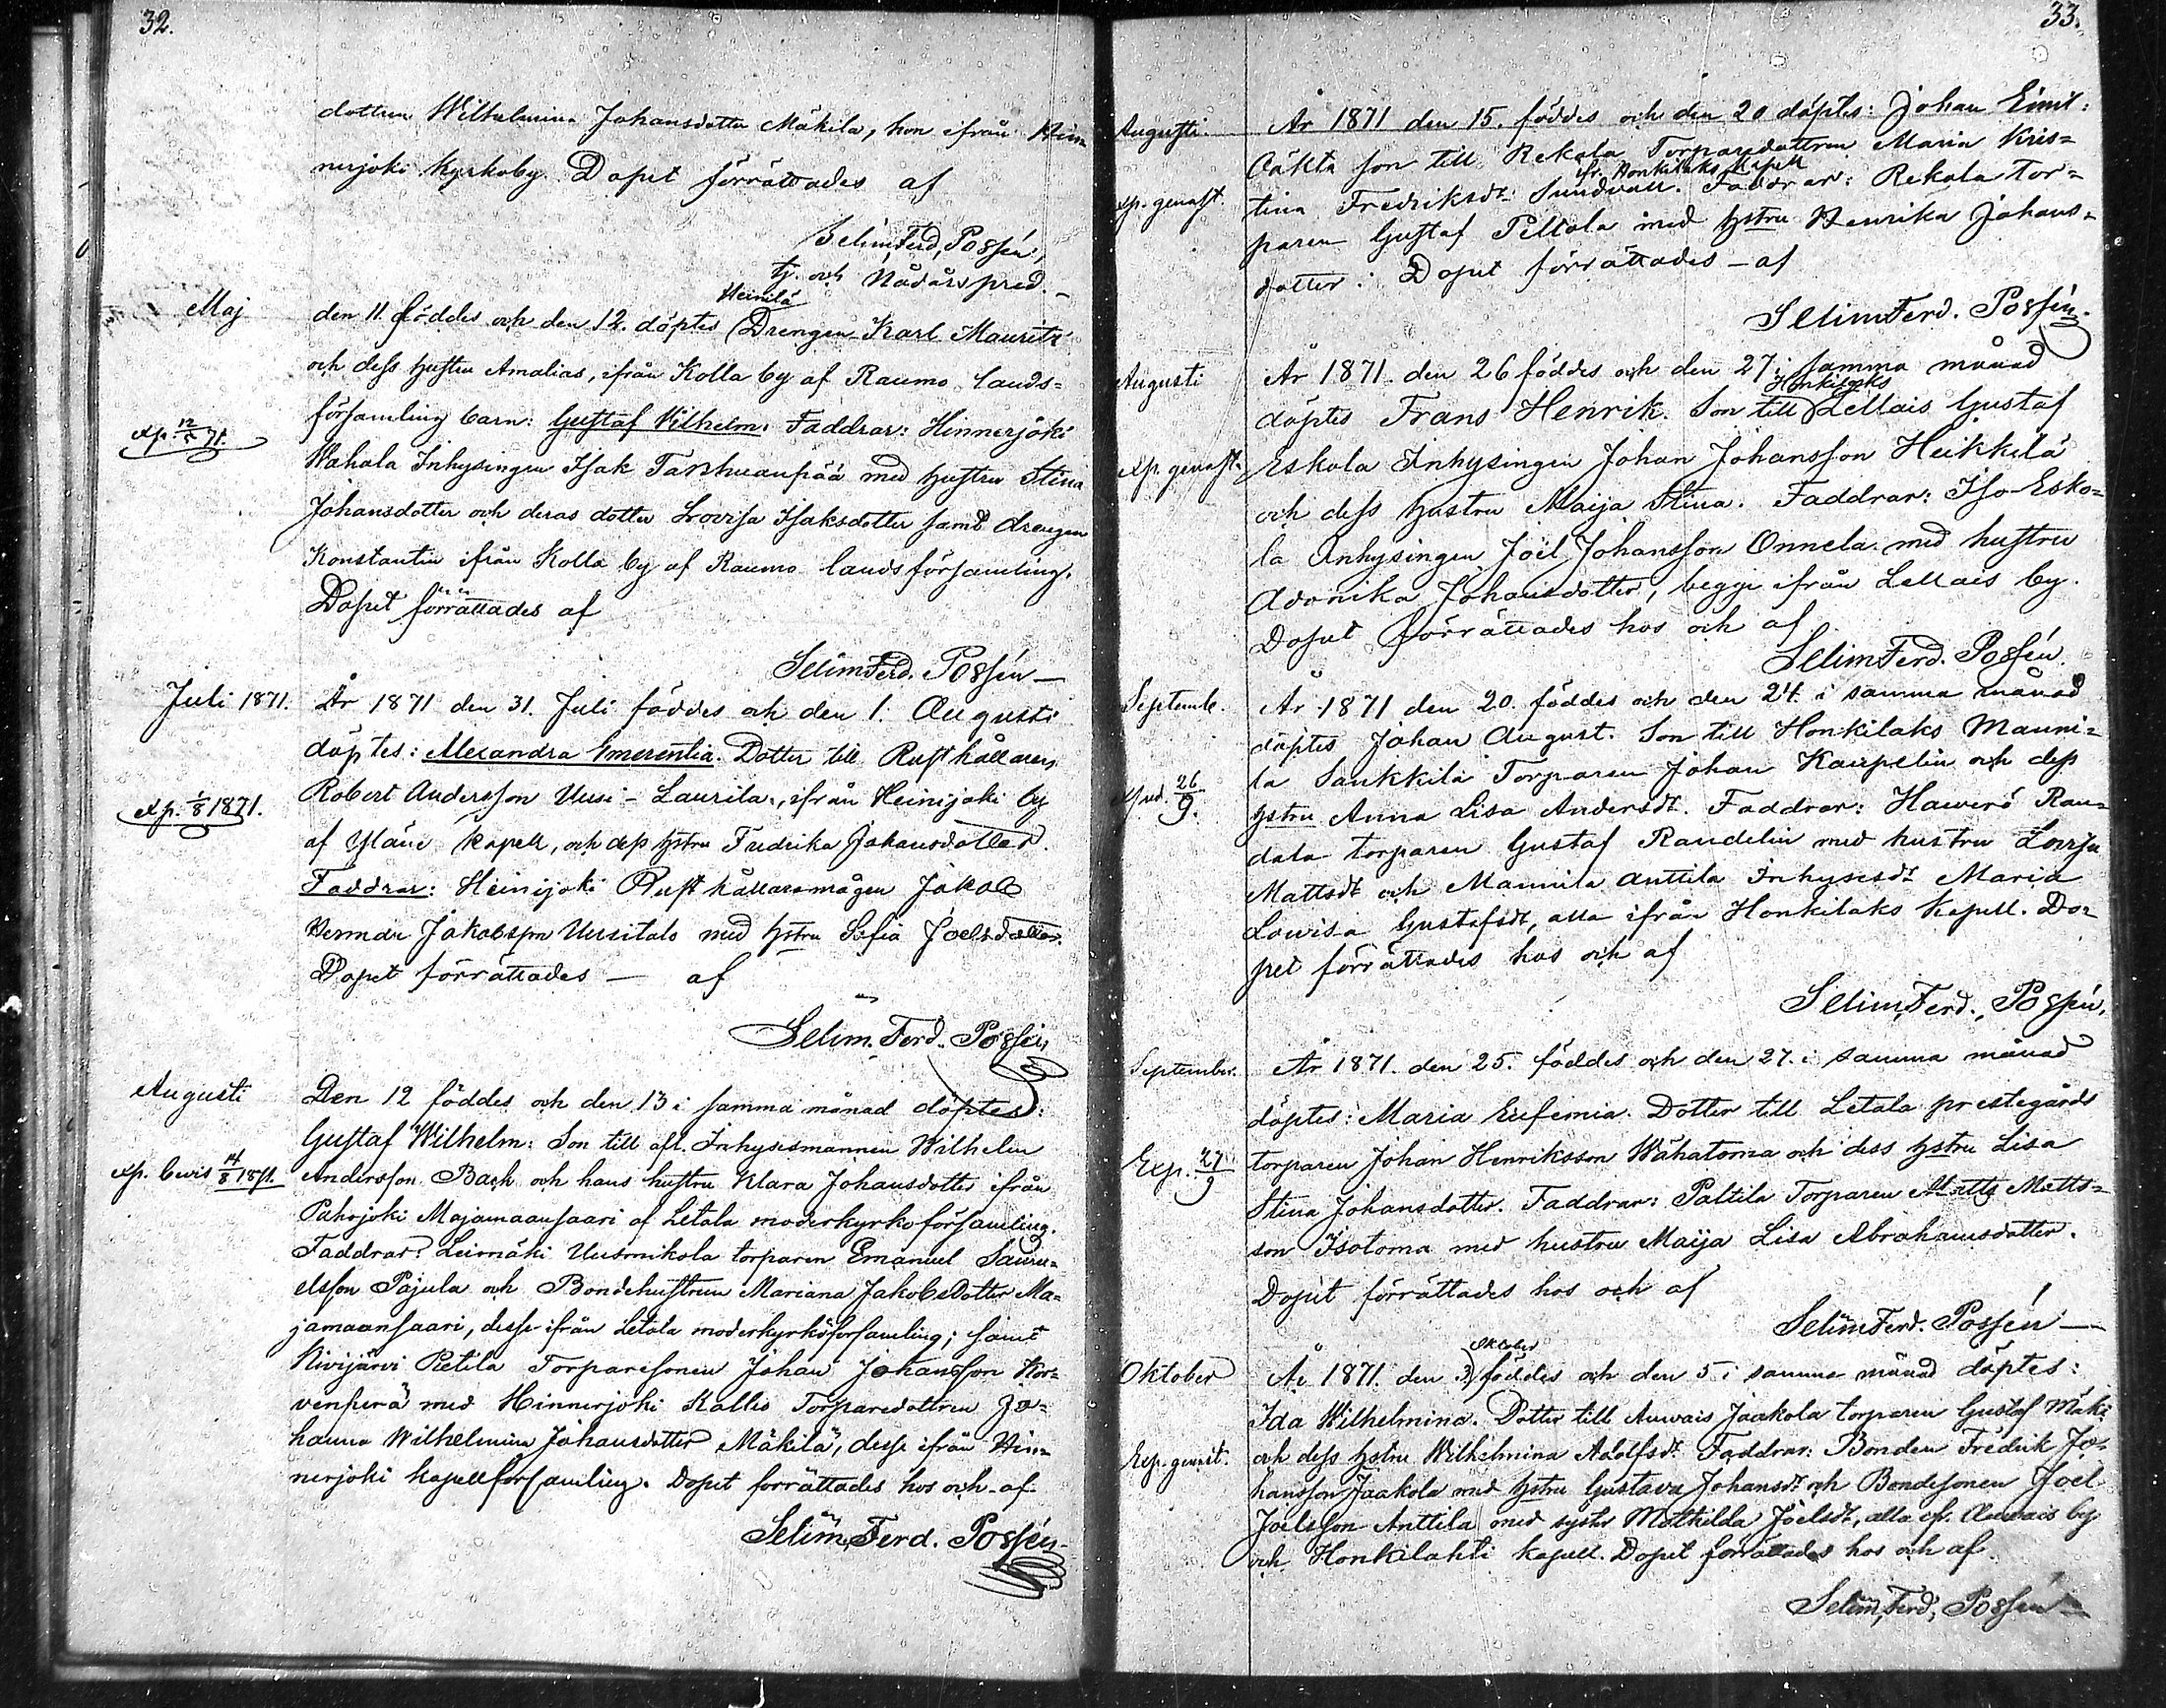 32.
dottren Wilhelmina Johansdotter Mäkilä, hon ifrån Hin
nerjoki Kyrkoby. Dopet förrättades af
Selim Ferd. Possén,
tj. och Nådårspred.
Maj
Heinilä
den 11. föddes och den 12. döptes Drengen Karl Mauritz
och dess hustru Amalias, ifrån Kolla by af Raumo lands-
församling barn: Gustaf Wilhelm. Faddrar: Hinnerjoki
exp. 12/5 71.
Wahala Inhysingen Isak with hustru Stina
Johansdotter och deras dotter Lovisa Isaksdotter samt drengen
Konstantin ifrån Kolla by af Raumo landsförsamling.
Dopet förrättades af
Selim Ferd. Possén
Juli 1871.
År 1871 den 31. Juli föddes och den 1. Augusti
döptes: Alexandra Emerentia. Dotter till Rusthållaren
exp. 1/8 1871.
Robert Andersson Uusi-Laurila, ifrån Heinijoki by
af Yläne kapell, och dess hstru Fredrika Johansdotter.
Faddrar: Heinijoki Rusthållaremågen Jakob
Jakobsson Uusitalo med hstru Sofia Joelsdotter.
Dopet förrättades — af
Selim. Ferd. Possén
Augusti
Den 12 föddes och den 13 i samma månad döptes:
Gustaf Wilhelm: Son till afl. Inhysesmannen Wilhelm
exp. bevis 14/8 1871.
Andersson Back och hans hustru Klara Johansdotter ifrån
Pahojoki Majamaansaari af Letala moderkyrkoförsamling.
Faddrar: Leimäki Uusmikola torparen Emanuel Samu-
elsson Pajula och Bondehustrun Mariana Jakobsdotter Ma-
jamaansaari, desse ifrån Letala moderkyrkoförsamling; samt
Kivijärvi Pietila Torparesonen Johan Johansson Kor-
venperä med Hinnerjoki Kallio Torparedottren Jo-
hanna Wilhelmina Johansdotter Mäkilä, desse ifrån Hin-
nerjoki kapellförsamling. Dopet förrättades hos och af
Selim Ferd. Possén
33.
Augusti.
År 1871 den 15. föddes och den 20 döptes: Johan Emil:
Oäkta son till Rekola Torparedottren Maria Kris-
fr. Honkilaks Kapell
exp. genast.
tina Fredriksdt: Sundvall. Faddrar: Rekola tor-
paren Gustaf Peltola med hstru Henrika Johans-
dotter: Dopet förrättades — af
Selim Ferd. Possén.
Augusti
År 1871. den 26 föddes och den 27 i samma månad
Honkijoks
döptes Frans Henrik. Son till Lellais Gustaf
exp. genast.
Eskola Inhysingen Johan Johansson Heikkilä
och dess hustru Maija Stina. Faddrar: Iso-Esko-
la Inhysingen Joël Johansson Onnela med hustru
Adonika Johansdotter, begge ifrån Lellais by.
Dopet förrättades hos och af
Selim Ferd. Possén.
Septemb.
År 1871 den 20. föddes och den 24. i samma månad
döptes Johan August. Son till Honkilaks Mauni-
la Saukkila Torparen Johan Kaupelin och dess
26/9.
hstru Anna Lisa Andersdt. Faddrar: Haverö Rau-
dala torparen Gustaf Randelin med hustru Lovisa
Mattsdt och Maunila Anttila Inhysesdt Maria
Lovisa Gustafsdt, alla ifrån Honkilaks Kapell. Do-
pet förrättades hos och af
Selim Ferd. Possén.
September.
År 1871. den 25. föddes och den 27. i samma månad
döptes: Maria Eufemia. Dotter till Letala prestegårds
Exp. 27/9
torparen Johan Henriksson Wähatoma och dess hstru Lisa
Stina Johansdotter. Faddrar: Paltila Torparen Matts Matts-
son Isotoma med hustru Maija Lisa Abrahamsdotter.
Dopet förrättades hos och af
Selim Ferd. Possén —
Oktober
Oktober
År 1871. den 3. föddes och den 5 i samma månad döptes:
Ida Wilhelmina. Dotter till Auvais Jaakola torparen Gustaf Mäki
Exp. genast.
och dess hstru Wilhelmina Adolfsdt. Faddrar: Bonden Fredrik Jo-
hansson Jaakola med hstru Gustava Johansdt och Bondesonen Joel
Joelsson Anttila med syster Mathilda Joelsdt, alla ifr. Auvais by
och Honkilahti kapell. Dopet förrättades hos och af.
Selim Ferd. Possén